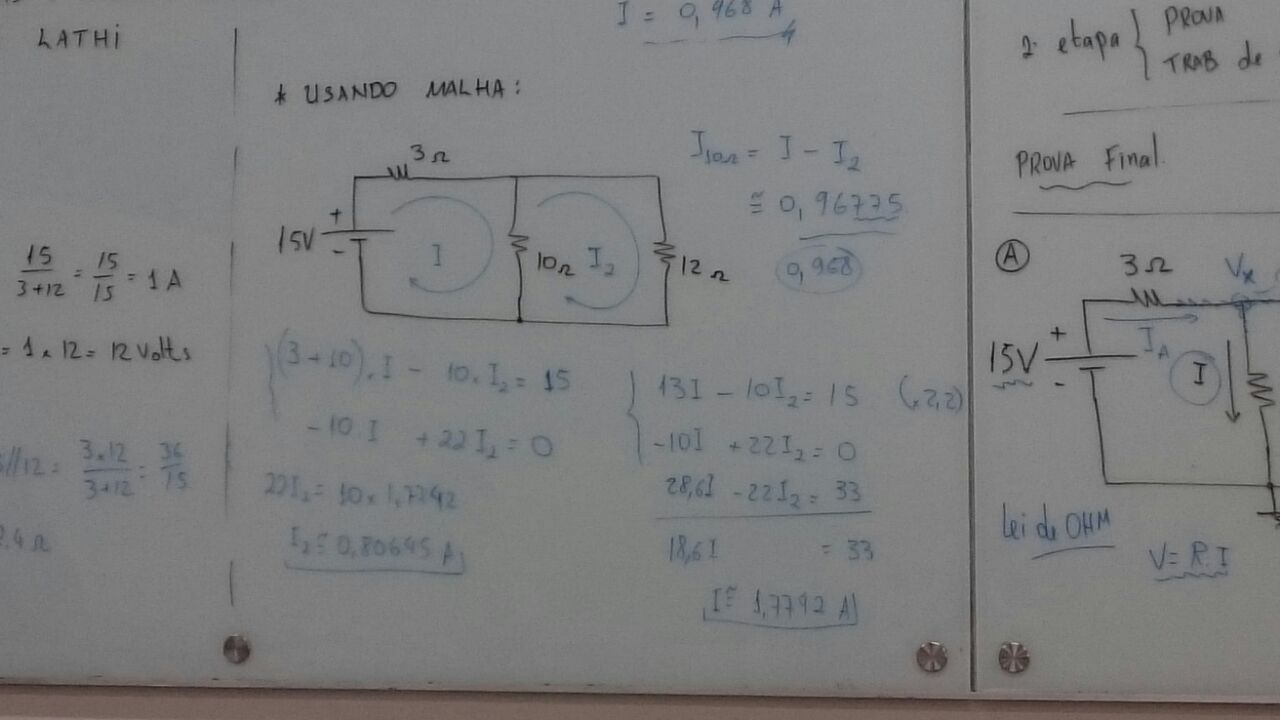 LATHI
15/(3+12) = 15/15 = 1 A
= 1 x 12 = 12 Volts
//12 = (3x12)/(3+12) = 36/15
2.4 Ω
I = 0,968 A
* USANDO MALHA:
3Ω
15V
+
-
I
10Ω
I₂
12Ω
I₁₀Ω = I - I₂
≅ 0,96775
0,968
(3+10).I - 10.I₂ = 15
-10.I + 22I₂ = 0
22I₂ = 10x1,7742
I₂ ≅ 0,80645 A
13I - 10I₂ = 15 (x2,2)
-10I + 22I₂ = 0
28,6I - 22I₂ = 33
18,6I = 33
I ≅ 1,7742 A
2ª etapa { PROVA
TRAB de
PROVA Final.
A
3Ω
Vx
15V
+
-
I_A
I
Lei de OHM
V = R.I